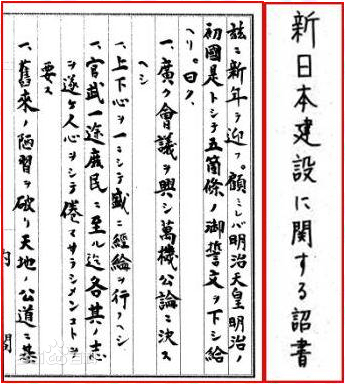 新日本建設に関する詔書
茲ニ新年ヲ迎フ。顧ミレバ明治天皇明治ノ
初國是トシテ五箇條ノ御誓文ヲ下シ給
ヘリ。曰ク、
一、廣ク會議ヲ興シ萬機公論ニ決ス
ヘシ
一、上下心ヲ一ニシテ盛ニ經綸ヲ行フヘシ
一、官武一途庶民ニ至ル迄各其ノ志
ヲ遂ケ人心ヲシテ倦マサラシメンコトヲ
要ス
一、舊來ノ陋習ヲ破リ天地ノ公道ニ基
内閣